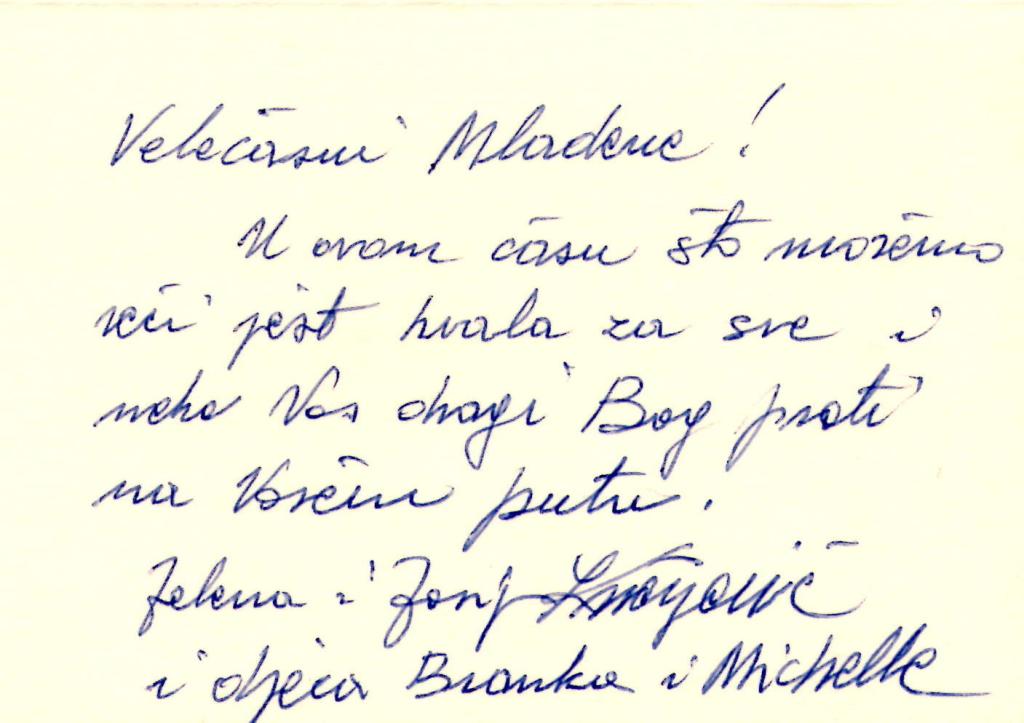 Velečasni Mladene!
U ovom času što možemo
reći jest hvala za sve i
neka Vas dragi Bog prati
na Vašem putu.
Jelena i Josip
i djeca Branka i Michelle